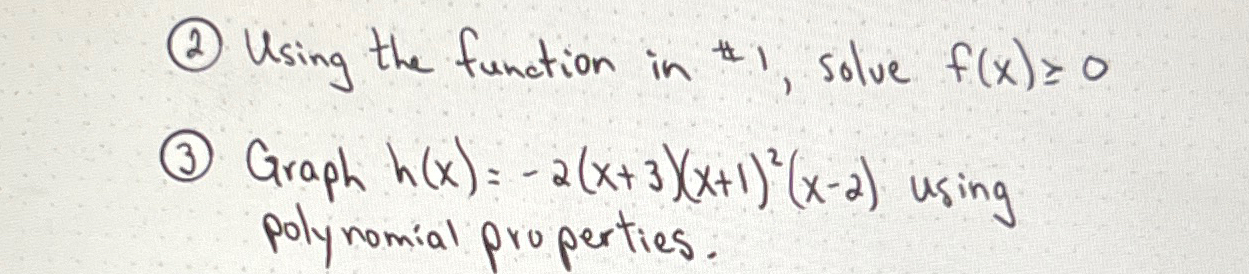 ② Using the function in #1, solve f(x) ≥ 0
③ Graph h(x) = -2(x+3)(x+1)²(x-2) using
polynomial properties.